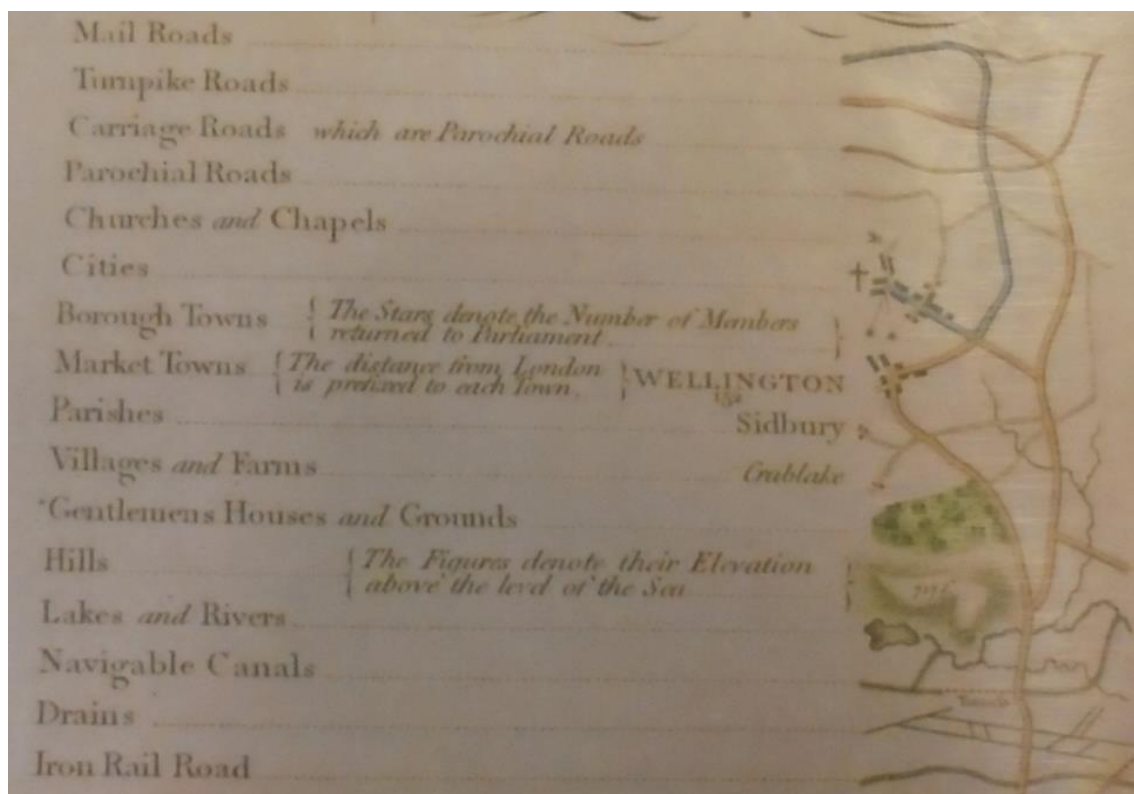 Mail Roads
Turnpike Roads
Carriage Roads which are Parochial Roads
Parochial Roads
Churches and Chapels
Cities
Borough Towns { The Stars denote the Number of Members
returned to Parliament }
Market Towns { The distance from London
is prefixed to each Town. } WELLINGTON
152
Parishes Sidbury
Villages and Farms Crablake
Gentlemens Houses and Grounds
Hills { The Figures denote their Elevation
above the level of the Sea }
Lakes and Rivers
Navigable Canals
Drains
Iron Rail Road